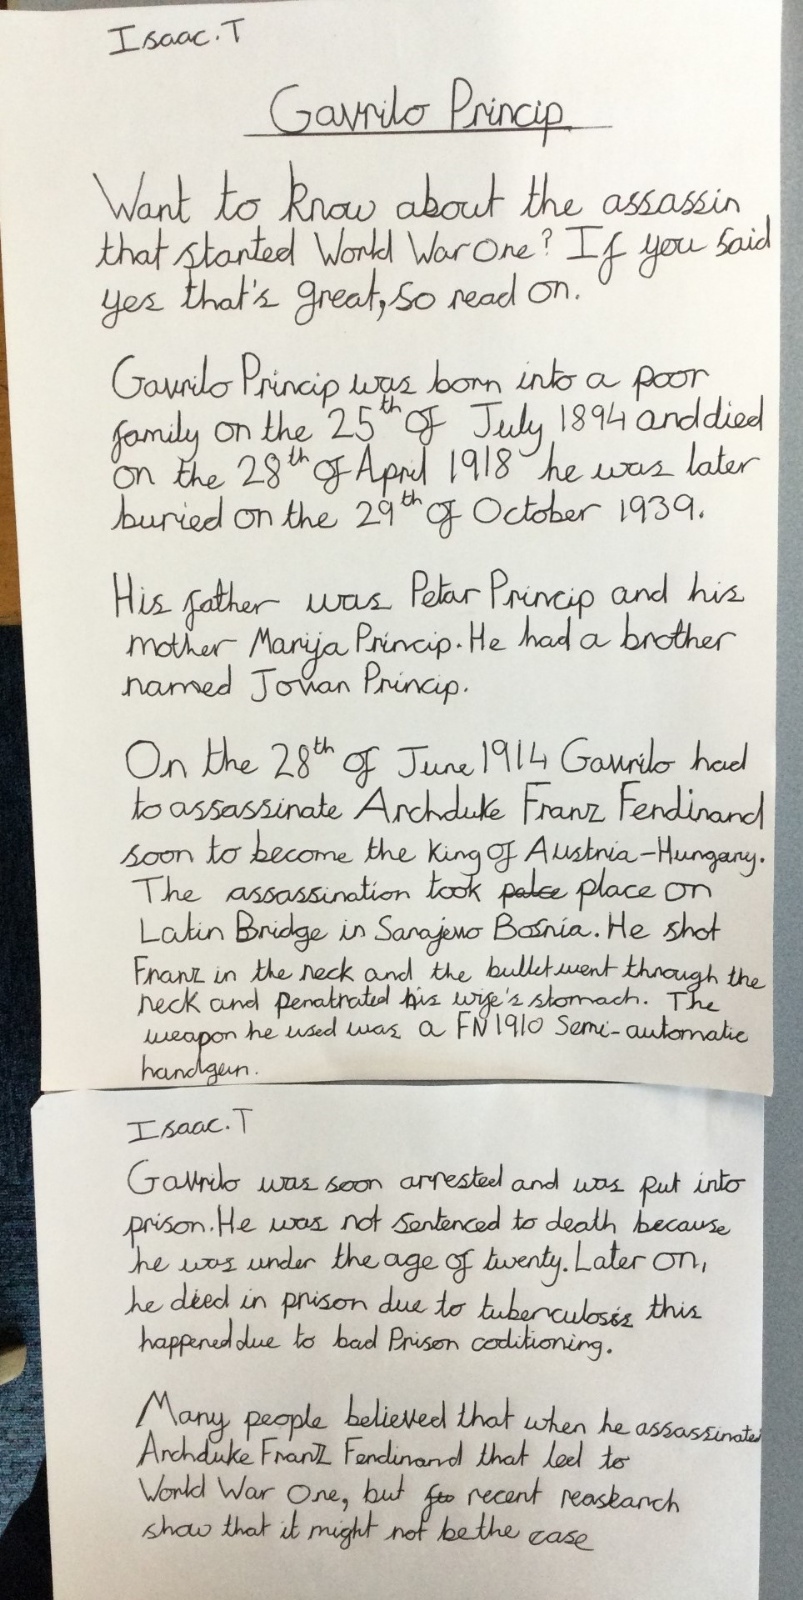 Isaac.T
Gavrilo Princip
Want to know about the assassin
that started World War One? If you said
yes that's great, so read on.
Gavrilo Princip was born into a poor
family on the 25th of July 1894 and died
on the 28th of April 1918 he was later
buried on the 29th of October 1939.
His father was Petar Princip and his
mother Marija Princip. He had a brother
named Jovan Princip.
On the 28th of June 1914 Gavrilo had
to assassinate Archduke Franz Ferdinand
soon to become the king of Austria-Hungary.
The assassination took palce place on
Latin Bridge in Sarajevo Bosnia. He shot
Franz in the neck and the bullet went through the
neck and penatrated his wife's stomach. The
weapon he used was a FN 1910 Semi-automatic
handgun.
Isaac.T
Gavrilo was soon arrested and was put into
prison. He was not sentenced to death because
he was under the age of twenty. Later on,
he died in prison due to tuberculosis this
happened due to bad Prison coditioning.
Many people believed that when he assassinated
Archduke Franz Ferdinand that led to
World War One, but recent reasearch
show that it might not be the case